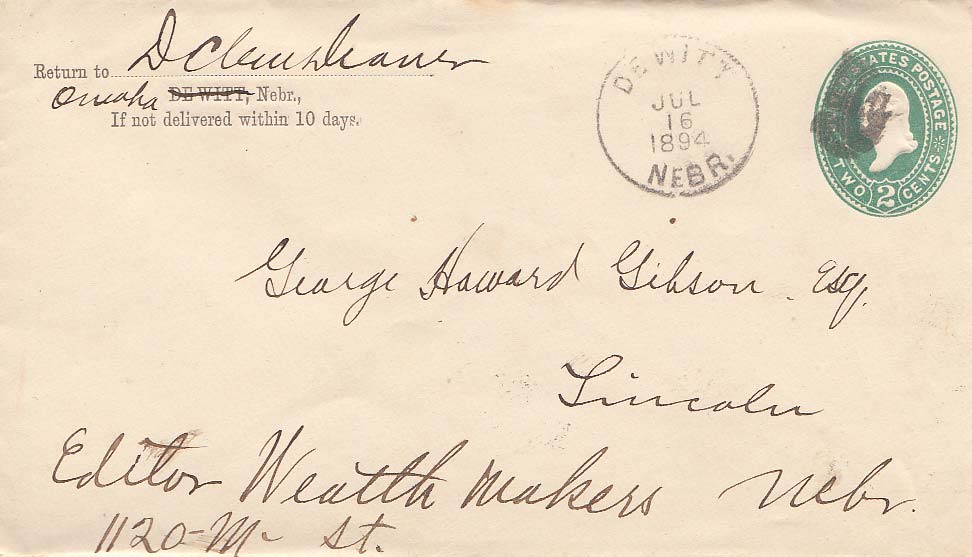 Return to D Clem Deaver
Omaha DE WITT, Nebr.,
If not delivered within 10 days.
DE WITT
JUL
16
1894
NEBR.
UNITED STATES POSTAGE
TWO 2 CENTS
George Howard Gibson Esq.
Lincoln
Editor Wealth Makers Nebr.
1120-M- St.